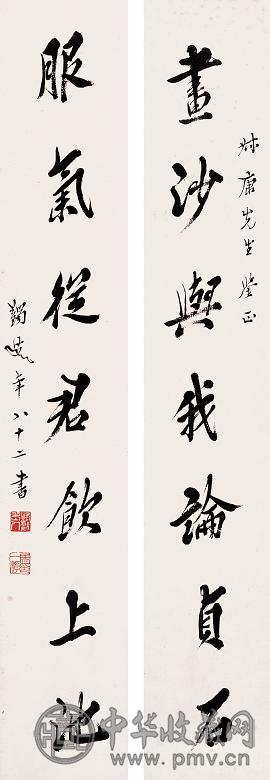 叔康先生鑒正
畫沙與我論貞石
服氣從君飲上池
蠲叟年八十二書
中华收藏网
www.pmv.cn